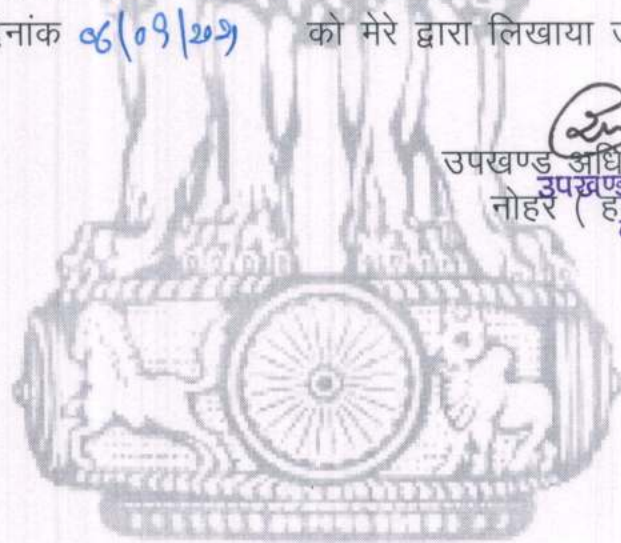 नांक 06/09/2021 को मेरे द्वारा लिखाया ज
उपखण्ड अधि
उपखण्ड
नोहर ( ह